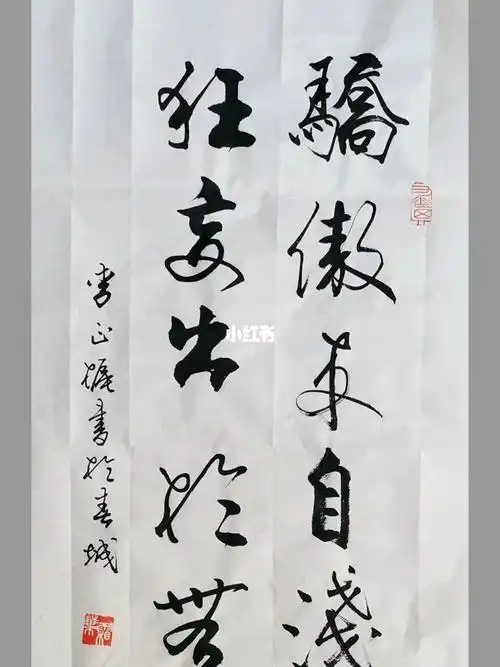 驕傲来自淺
狂妄出於無
李正㨿書於春城
小红书